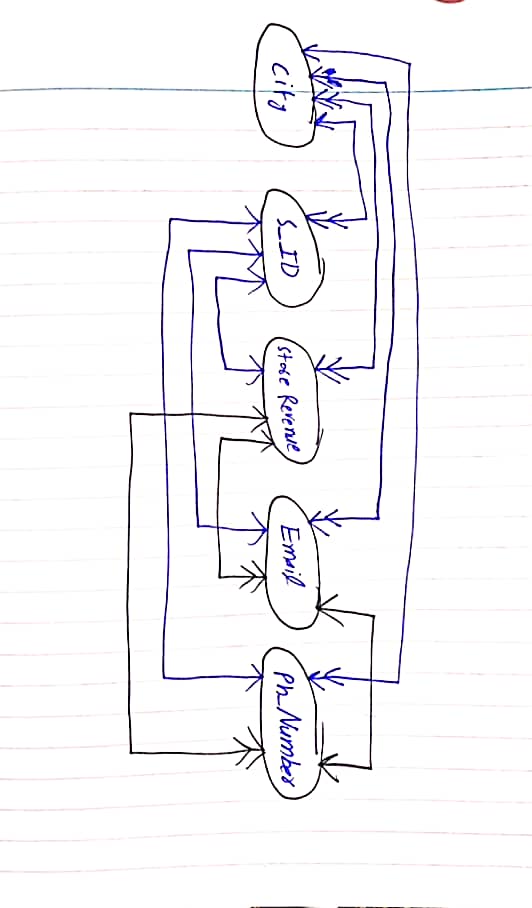 City
S_ID
Store Revenue
Email
Ph_Number